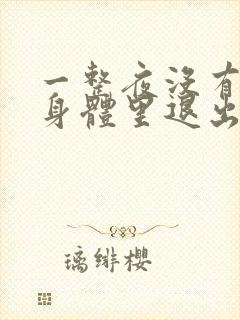 一整夜沒有
身體里退出
璃緋櫻